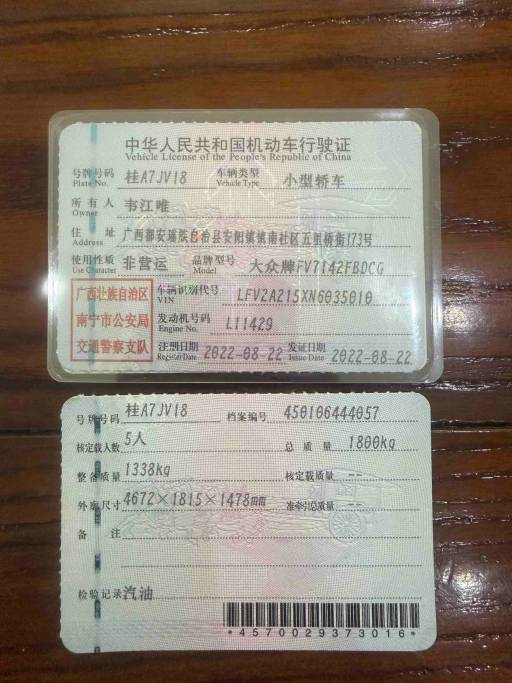 中华人民共和国机动车行驶证
Vehicle License of the People's Republic of China
号牌号码 桂A7JV18 车辆类型 小型轿车
Plate No. Vehicle Type
所有人 韦江唯
Owner
住址 广西都安瑶族自治县安阳镇镇南社区五里桥街173号
Address
使用性质 非营运 品牌型号 大众牌FV7142FBDCG
Use Character Model
广西壮族自治区 车辆识别代号 LFV2A215XN6035010
VIN
南宁市公安局 发动机号码 L11429
Engine No.
交通警察支队 注册日期 2022-08-22 发证日期 2022-08-22
Register Date Issue Date
号牌号码 桂A7JV18 档案编号 450106444057
核定载人数 5人 总质量 1800kg
整备质量 1338kg 核定载质量 --
外廓尺寸 4672×1815×1478mm 准牵引总质量 --
备注
检验记录 汽油
*4570029373016*